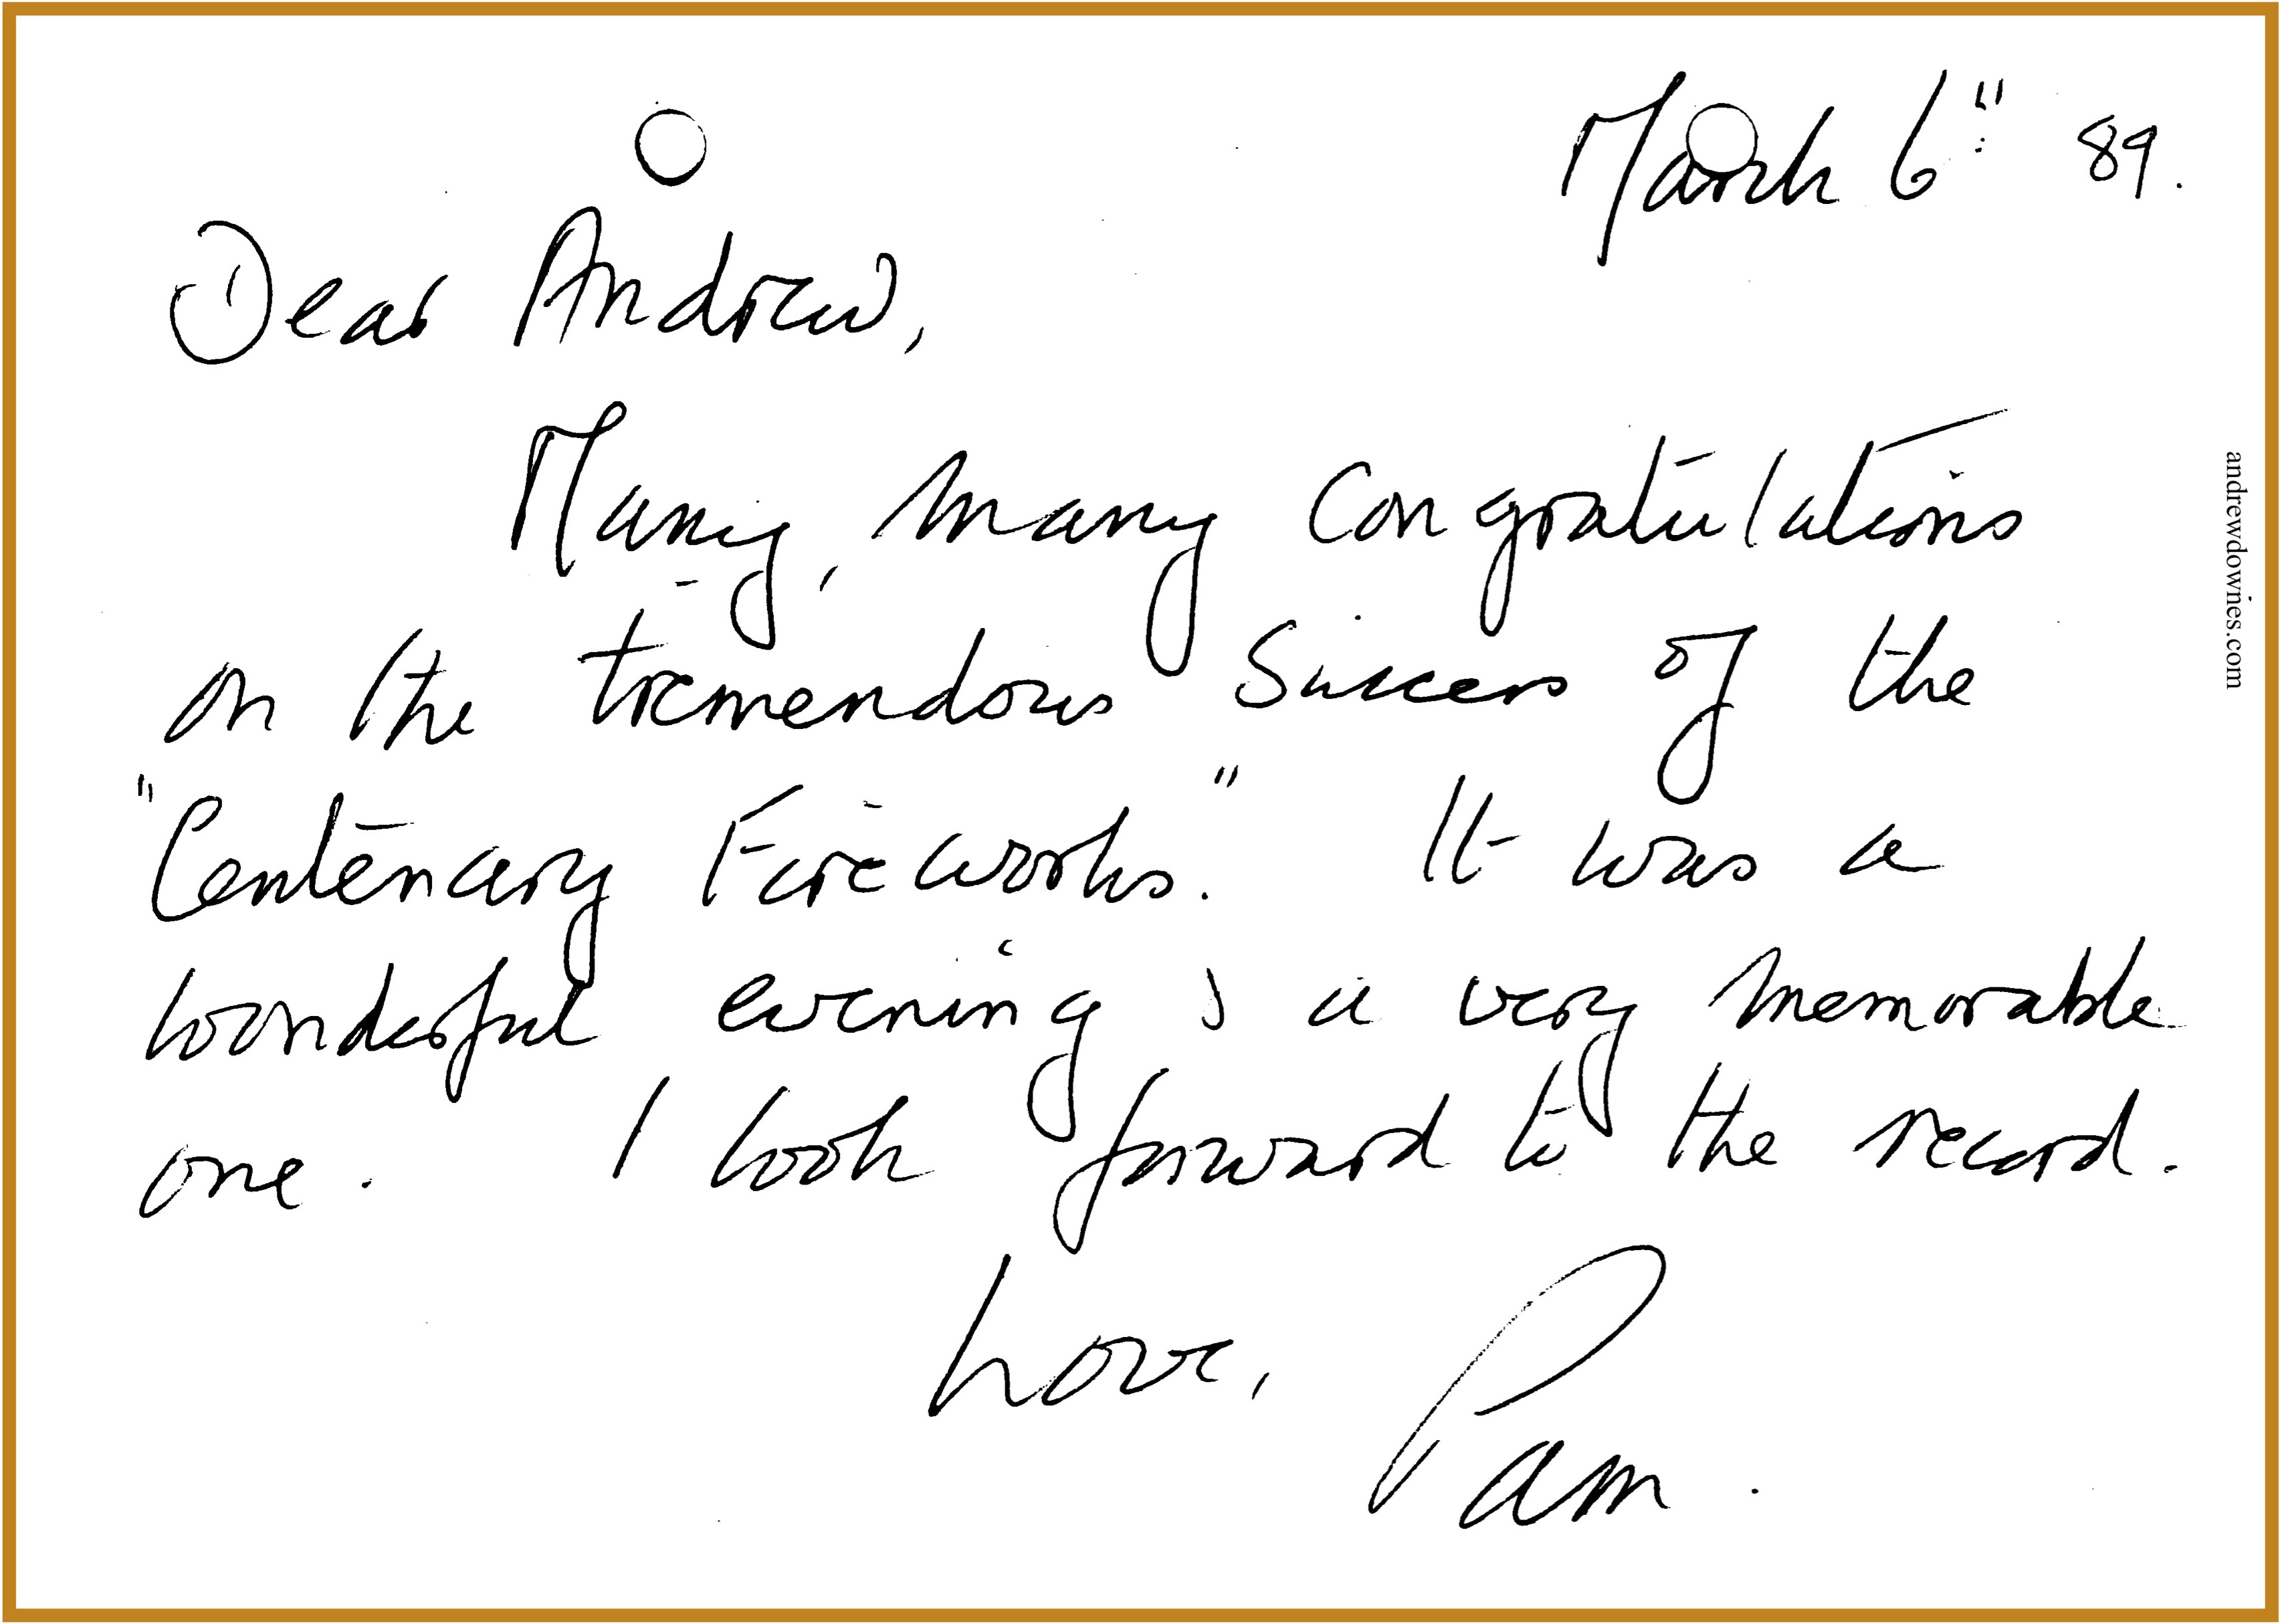 March 6" 89.
Dear Andrew,
Many, many Congratulations
on the tremendous Success of the
"Centenary Fireworks." It was a
wonderful evening & a very memorable
one. I look forward to the record.
Love,
Pam.
andrewdownes.com